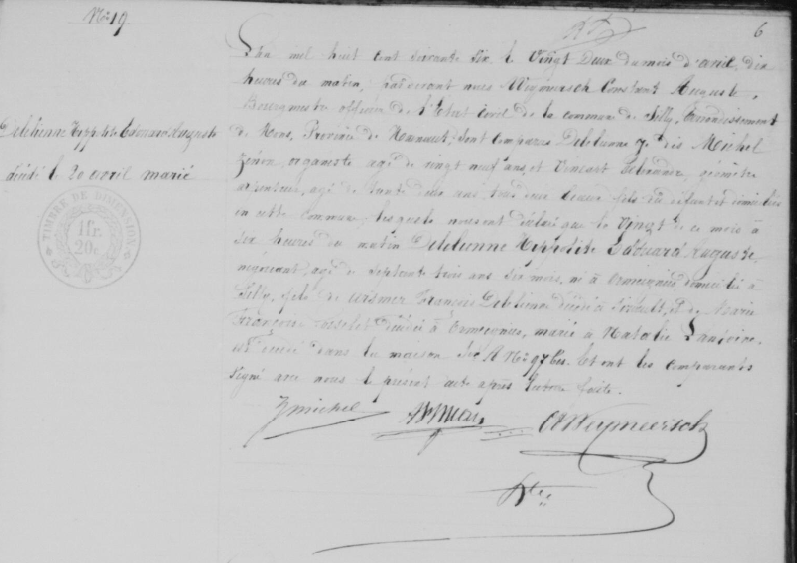 No: 19
6
L'an mil huit cent soixante six le vingt deux du mois d'avril, dix
heures du matin, pardevant nous Weymeersch Constant Auguste,
Bourgmestre officier de l'Etat Civil de la commune de Silly, Arrondissement
de Mons, Province de Hainaut, sont comparus Delelienne dis Michel
Zénon, organiste agé de vingt neuf ans, et Vincart géomètre
arpenteur, agé de trente deux ans tous deux fils du défunt et domiciliés
en cette commune, lesquels nous ont déclaré que le Vingt de ce mois à
six heures du matin Delelienne Hippolite Edouard Auguste,
négociant, agé de septante trois ans six mois, né à domicilié à
Silly, fils de François Delelienne décédé à et de Marie
Françoise décédée à marié à Natalie
est décédé dans la maison Son A No: 97 bis. Et ont les comparants
signé avec nous le présent acte après lecture faite.
Delelienne Hippolite Edouard Auguste
décédé le 20 avril marié
TIMBRE DE DIMENSION
1fr.
20c.
Zmichel
CAWeymeersch